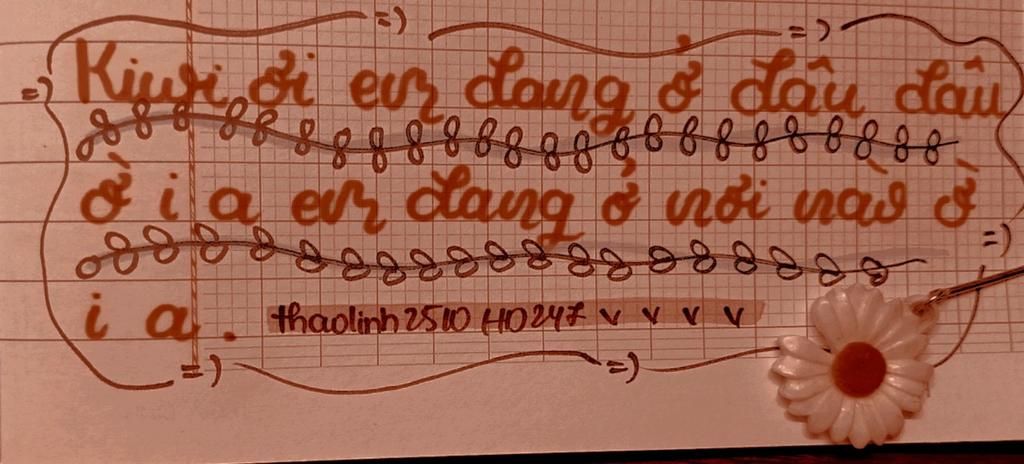 =)
=)
=) Kiwi ơi em đang ở đâu đâu
ờ i a em đang ở nơi nào ờ
=)
i a. thaolinh2510 HD247 v v v v
=)
=)